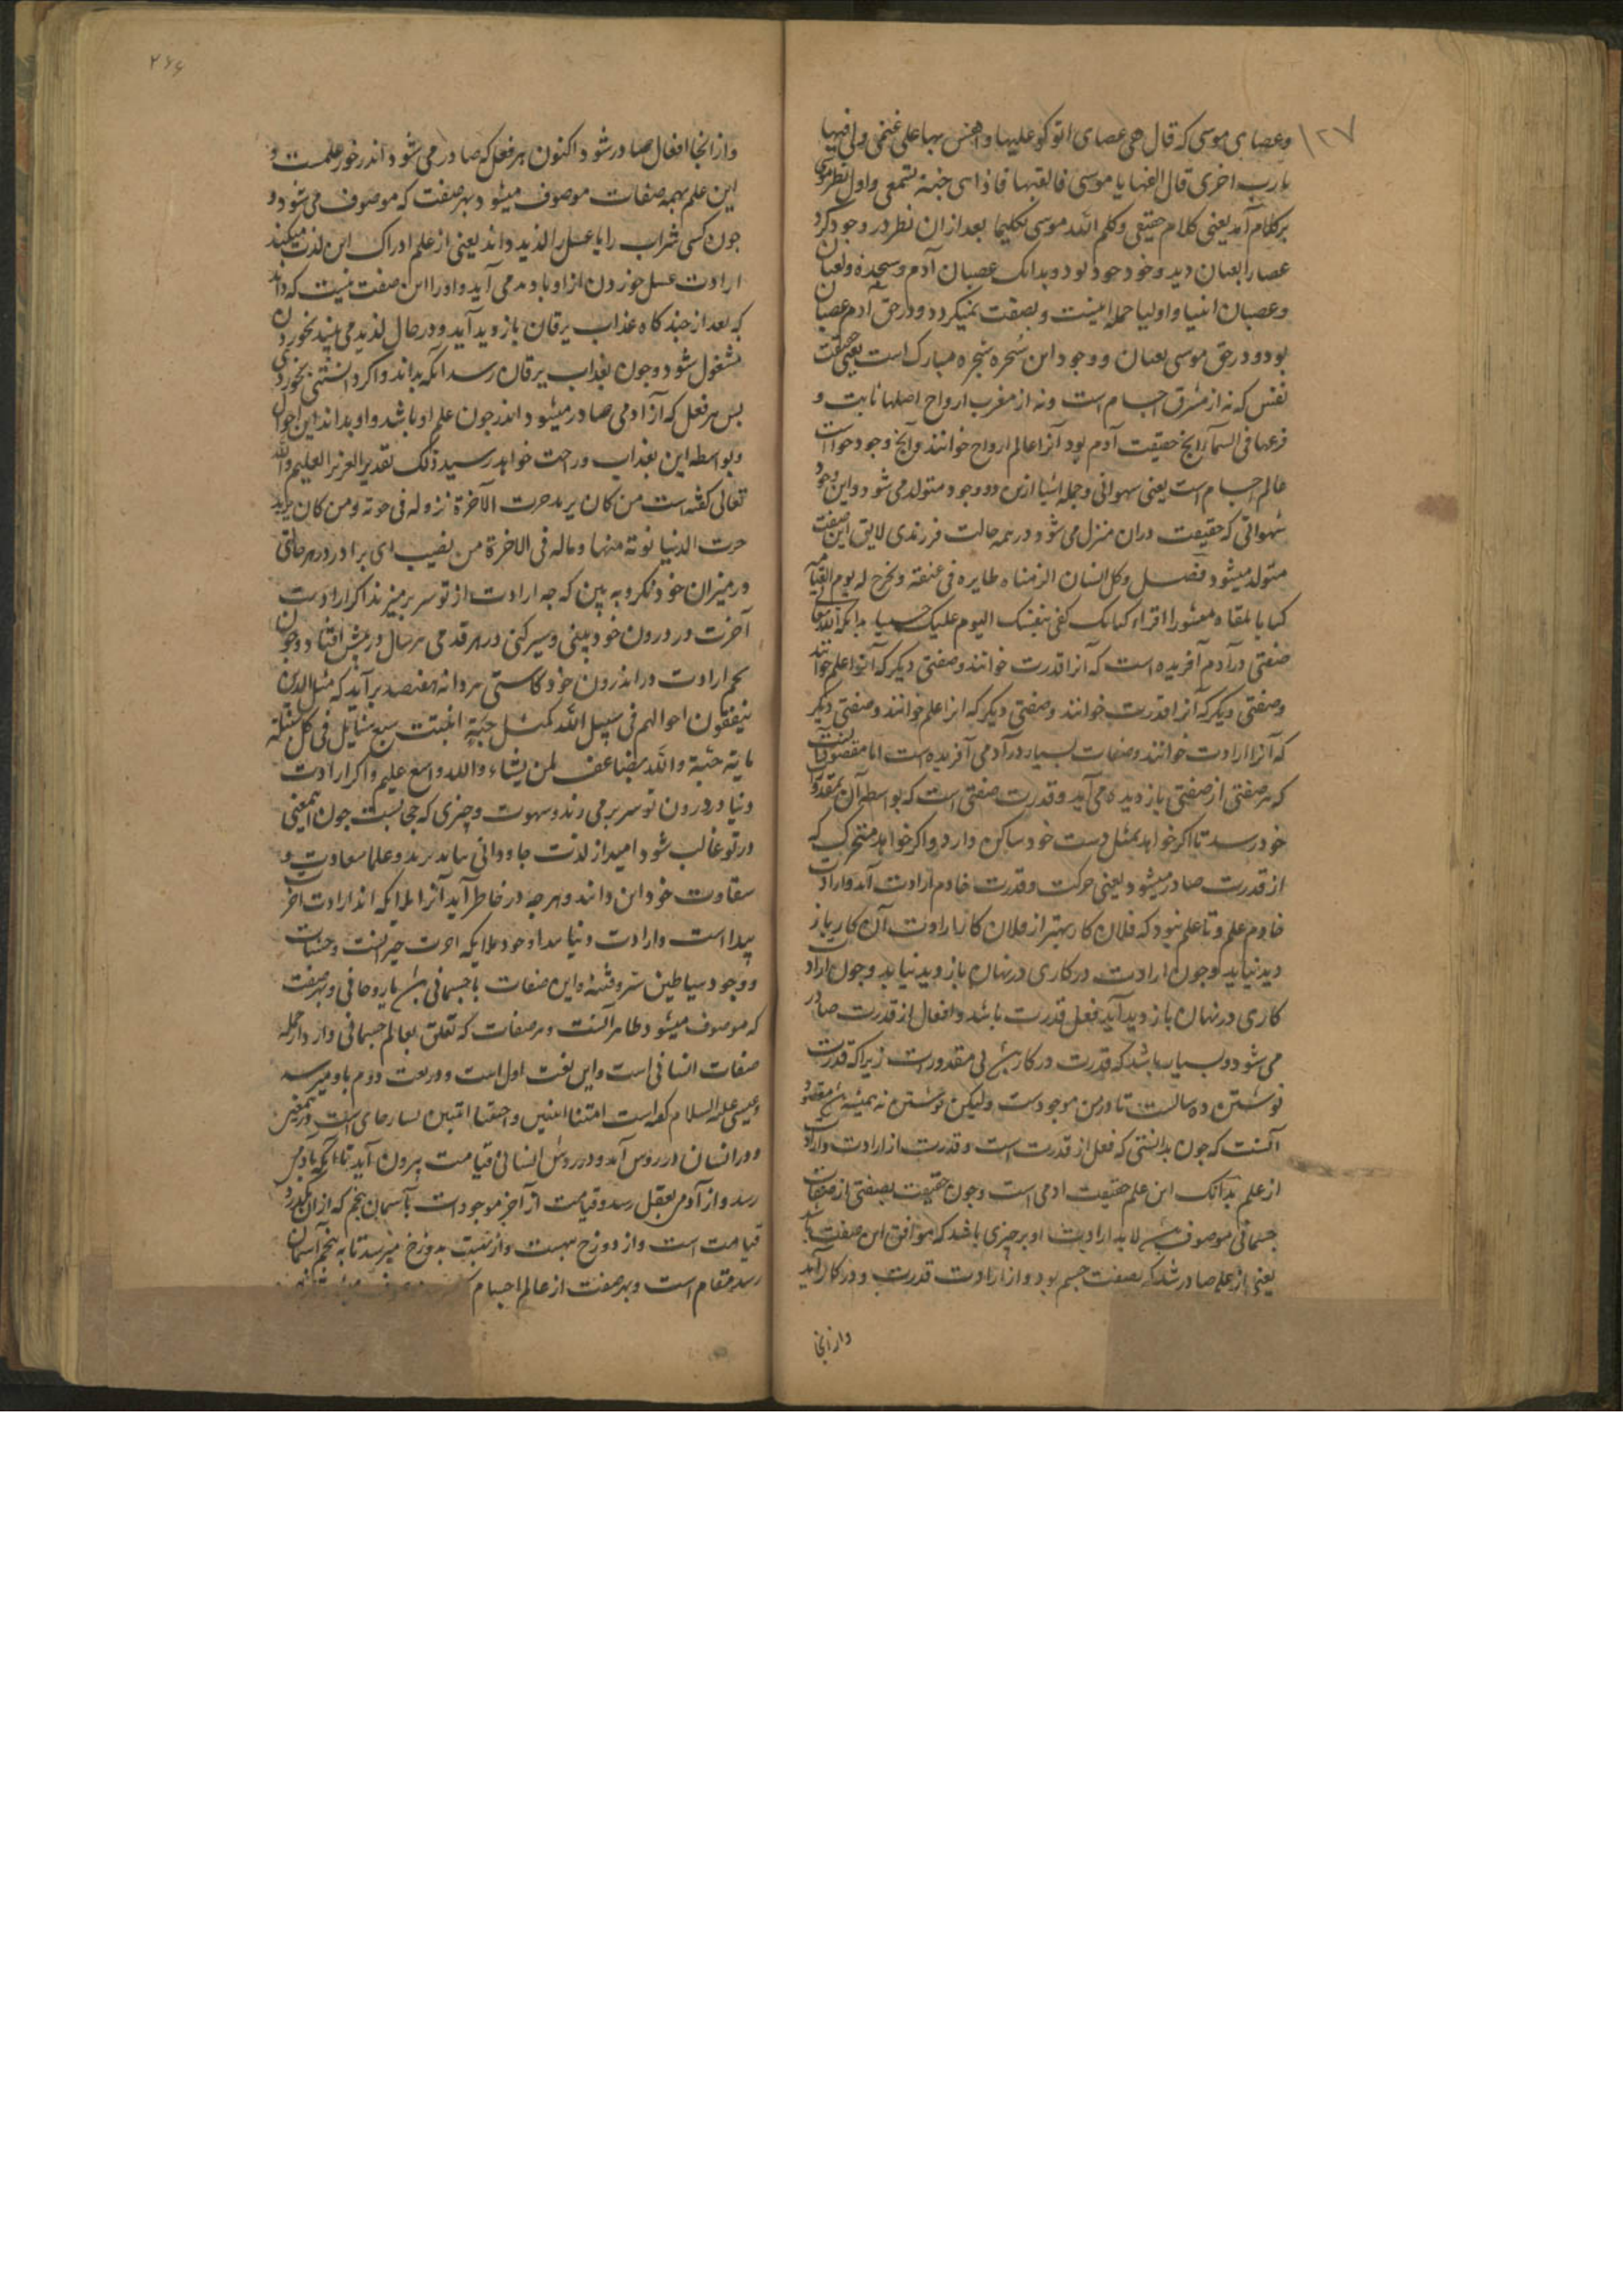 ۱۲۷
وعصای موسی که قال هی عصای اتوکؤ علیها واهش بها علی غنمی ولی فیها
مارب اخری قال القها یا موسی فالقیها فاذا هی حیة تسعی واول نظر موسی
برکلام آمد یعنی کلام حقیقی وکلم الله موسی تکلیما بعد ازان نظر در وجود کرد
عصا را ثعبان دید وخود بود وبدانک عصیان آدم وسجده وثعبان
وعصیان انبیا واولیا جمله اینست وبصفت نمیکردد ودر حق آدم عصیان
بود ودر حق موسی ثعبان ووجود این شجره شجره مبارک است یعنی حقیقت
نفس که نه از مشرق اجسام است ونه از مغرب ارواح اصلها ثابت و
فرعها فی السماء آنج حقیقت آدم بود آنرا عالم ارواح خوانند وآنج وجود حوا است
عالم اجسام است یعنی شهوانی وجمله اشیا ازین دو وجود متولد می شود واین وجود
شهوانی که حقیقت دران منزل می شود در همه حالت فرزندی لایق این صفت
متولد میشود فصل وکل انسان الزمناه طایره فی عنقه ونخرج له یوم القیامه
کتابا یلقاه منشورا اقراء کتابک کفی بنفسک الیوم علیک حسیبا بدانکه الله تعالی
صفتی در آدم آفریده است که آنرا قدرت خوانند وصفتی دیکر که آنرا علم خوانند
وصفتی دیکر که آنرا قدرت خوانند وصفتی دیکر که انرا علم خوانند وصفتی دیکر
که آنرا ارادت خوانند وصفات بسیار در آدمی آفریده است اما مقصود آنست
که هر صفتی از صفتی بازدید می آید وقدرت صفتی است که بواسطه آن بمقدور
خود رسد تا اکر خواهد بمثل دست خود ساکن دارد واکر خواهد متحرک که
از قدرت صادر میشود یعنی حرکت وقدرت خادم ارادت آمد وارادت
خادم علم وتا علم نبود که فلان کار بهتر از فلان کار ارادت آن کار باز
دید نیاید وچون ارادت در کاری در نهان بازدید نیاید وچون ارادت
کاری در نهان بازدید آید فعل قدرت باشد وافعال از قدرت صادر
می شود وبسیار باشد که قدرت در کار بی مقدورست زیرا که قدرت
نوشتن ده سالست تا در من موجودست ولیکن نوشتن نه همیشه مقصود
آنست که چون بدانستی که فعل از قدرت است وقدرت از ارادت وارادت
از علم بدانک این علم حقیقت ادمی است وچون حقیقت بصفتی از صفات
جسمانی موصوف لابد ارادت او بر چیزی باشد که موافق این صفت باشد
یعنی از علم صادر شد که بصفت جسم بود واز ارادت قدرت ودر کار آید
وازانجا
۲۶۶
وازانجا افعال صادر شود اکنون هر فعل که صادر می شود اندر خور علمست و
این علم بهمه صفات موصوف میشود وبهر صفت که موصوف می شود و
چون کسی شراب را یا عسل را لذید داند یعنی از علم ادراک این لذت میکند
ارادت عسل خوردن ازو بادید می آید واورا این صفت نیست که داند
که بعد از چند کاه عذاب یرقان بازدید آید ودر حال لذید می بیند بخوردن
مشغول شود وچون بعذاب یرقان رسد آنکه بداند واکر دانستی نخوردی
پس هر فعل که از آدمی صادر میشود اندر چون علم او باشد واو بداند این احوال
وبواسطه این بعذاب وراحت خواهد رسید ذلک تقدیر العزیز العلیم والله
تعالی کفته است من کان یرید حرث الآخرة نزد له فی حرثه ومن کان یرید
حرث الدنیا نوته منها وماله فی الاخرة من نصیب ای برادر در هر حالتی
در میزان خود نکر وبه بین که چه ارادت از تو سر بر میزند اکر ارادت
آخرت در درون خود بینی وسیر کنی در هر قدمی هر سال در پیش افتاد وچون
تخم ارادت در اندرون خود کاستی هر دانه هفتصد برآید که مثل الذین
ینفقون اموالهم فی سبیل الله کمثل حبة انبتت سبع سنابل فی کل سنبلة
مایة حبة والله یضاعف لمن یشاء والله واسع علیم واکر ارادت
دنیا در درون تو سر بر می زند وشهوت وچیزی که چون این معنی
در تو غالب شود امید از لذت جاودانی بباید برید وعلما سعادت و
شقاوت خود این دانند وهر چه در خاطر آید آنرا ارادت اخرت
پیدا است وارادت دنیا وجود ملایکه اخرت خیر آنست وحسنات
ووجود شیاطین شر وفتنه واین صفات یا جسمانی یا روحانی وبهر صفت
که موصوف میشود ظاهر آنست وهر صفات که تعلق بعالم جسمانی دارد از جمله
صفات انسانی است واین بعث اول است ودر بعث دوم باو میرسد
وعیسی علیه السلام کفته است امتنا اثنین واحیینا اثنین
ودر انسان در روش آمد ودر روش انسانی قیامت بیرون آید تا آنکه بآدمی
رسد واز آدمی بعقل رسد وقیامت از آخر موجود است بآسمان پنجم که ازان بکذرد
قیامت است واز دوزخ بهشت واز نسبت بدوزخ میرسد تا به پنجم آسمان
رسد مقام است وبهر صفت از عالم اجسام